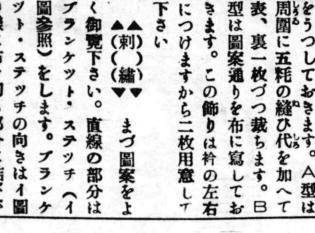 をうつしておきます。A型は
周圍に五粍の縫ひ代を加へて
表、裏一枚づつ裁ちます。B
型は圖案通りを布に寫してお
きます。この飾りは衿の左右
につけますから二枚用意して
下さい
▲(刺)▼ まづ圖案をよ
▲(繡)▼
く御覽下さい。直線の部分は
ブランケット・ステッチ(イ
圖參照)をします。ブランケ
ット・ステッチの向きはイ圖